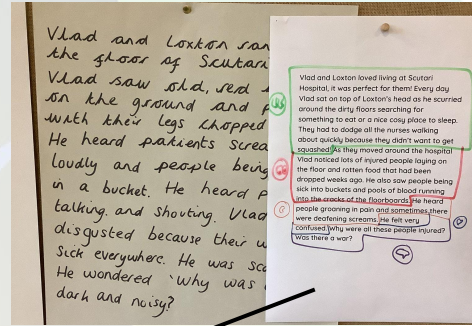 Vlad and Loxton ran
the floor of Scutari
Vlad saw old, red
on the ground and
with their legs chopped
He heard patients
loudly and people being
in a bucket. He heard
talking and shouting. Vlad
disgusted because their
sick everywhere. He was
He wondered 'Why was
dark and noisy?
Vlad and Loxton loved living at Scutari
Hospital, it was perfect for them! Every day
Vlad sat on top of Loxton's head as he scurried
around the dirty floors searching for
something to eat or a nice cosy place to sleep.
They had to dodge all the nurses walking
about quickly because they didn't want to get
squashed. As they moved around the hospital
Vlad noticed lots of injured people laying on
the floor and rotten food that had been
dropped weeks ago. He also saw people being
sick into buckets and pools of blood running
into the cracks of the floorboards. He heard
people groaning in pain and sometimes there
were deafening screams. He felt very
confused. Why were all these people injured?
Was there a war?